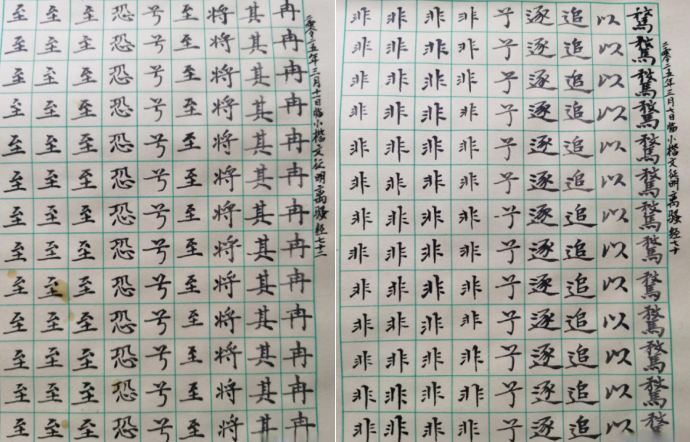 二零二五年三月十日临小楷文征明离骚经七十二
冉冉冉冉冉冉冉冉冉冉冉冉冉
其其其其其其其其其其其其其
将将将将将将将将将将将将将
至至至至至至至至至至至至至
兮兮兮兮兮兮兮兮兮兮兮兮兮
恐恐恐恐恐恐恐恐恐恐恐恐恐
至至至至至至至至至至至至至
至至至至至至至至至至至至至
至至至至至至至至至至至至至
二零二五年三月七日临小楷文征明离骚经七十
騖騖騖騖騖騖騖騖騖騖騖騖騖
以以以以以以以以以以以以以
追追追追追追追追追追追追追
逐逐逐逐逐逐逐逐逐逐逐逐逐
兮兮兮兮兮兮兮兮兮兮兮兮兮
非非非非非非非非非非非非非
非非非非非非非非非非非非非
非非非非非非非非非非非非非
非非非非非非非非非非非非非